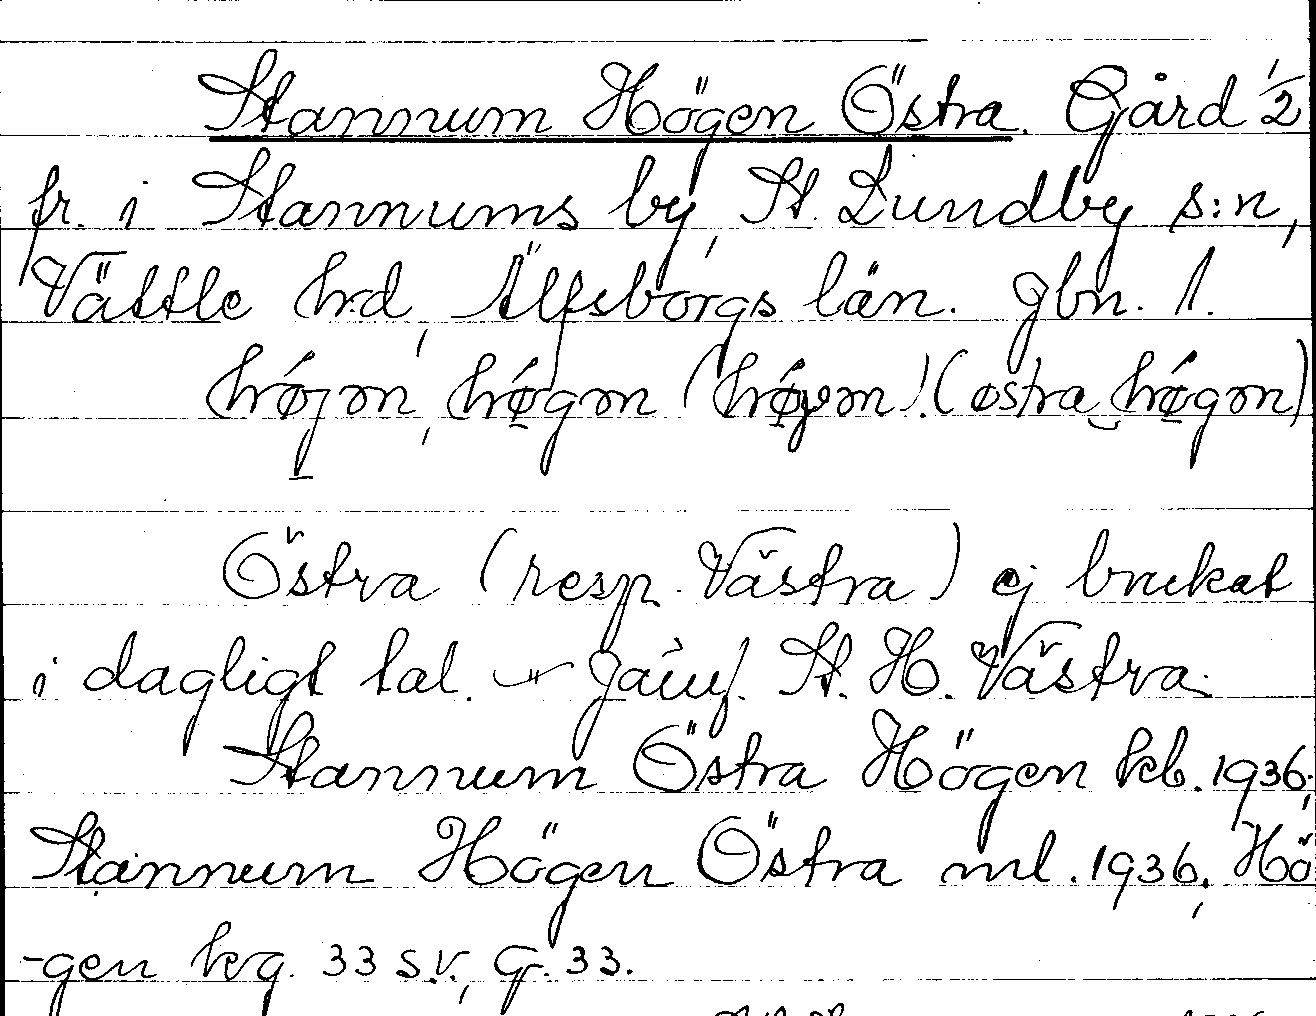 Stannum Högen Östra. Gård 1/2
fr. i Stannums by, St. Lundby s:n,
Vättle hrd, Älfsborgs län. gbn. 1.
(østra
Östra (resp. Västra) ej brukat
i dagligt tal. Jämf. St. H. Västra.
Stannum Östra Högen kb. 1936;
Stannum Högen Östra ml. 1936; Hö
-gen kvg. 33 s.v., G. 33.